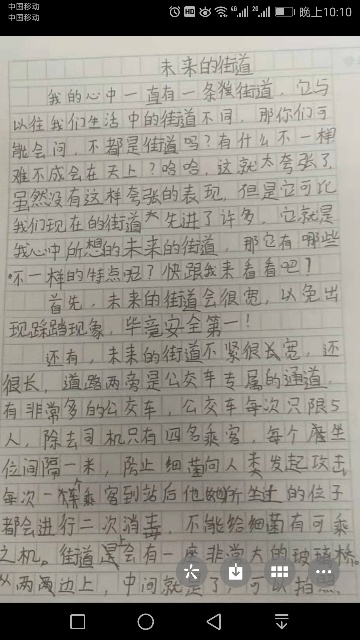 中国移动
中国移动
晚上10:10
未来的街道
我的心中一直有一条独街道，它与
以往我们生活中的街道不同，那你们可
能会问，不都是街道吗？有什么不一样
难不成会在天上？哈哈，这就太夸张了
虽然没有这样夸张的表现，但是它可比
我们现在的街道先进了许多，它就是
我心中所想的未来的街道，那它有哪些
不一样的特点呢？快跟我来看看吧！
首先，未来的街道会很宽，以免出
现踩踏现象，毕竟安全第一！
还有，未来的街道不紧很长宽，还
很长，道路两旁是公交车专属的通道
有非常多的公交车，公交车每次只限5
人，除去司机只有四名乘客，每个座
位间隔一米，防止细菌向人类发起攻击
每次一个乘客到站后他的位子
都会进行二次消毒，不能给细菌有可乘
之机。街道上会有一座非常大的玻璃桥。
从两边上，中间就是了，可以拍照